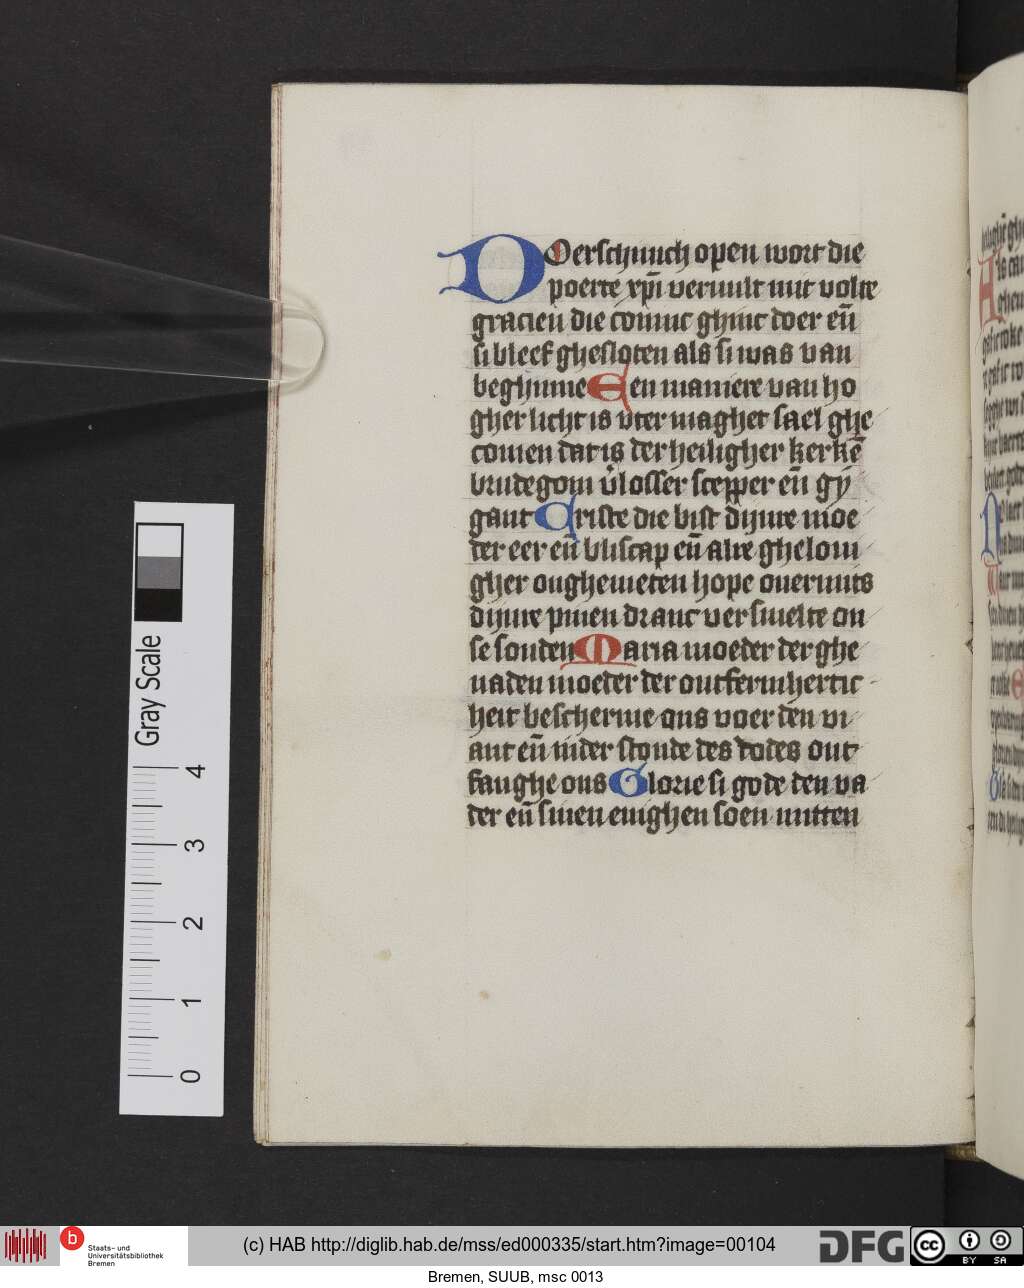 DOerschinich open wort die
poerte xp̄i veruult mit volre
gracien die coninc ghinc doer eñ
si bleef ghesloten als si was van
beghinne Een maniere van ho
gher licht is vter maghet sael ghe
comen dat is der heiligher kerkē
brudegom v̓losser scepper eñ gy
gant Criste die bist dijnre moe
der eer eñ bliscap eñ alre gheloui
gher onghemeten hope ouermits
dijnre pinen dranc versmelte on
se sonden Maria moeder der ghe
naden moeder der ontfermhertic
heit bescherme ons voer den vi
ant eñ inder stonde des dodes ont
fanghe ons Glorie si gode den va
der eñ sinen enighen soen mitten
Gray Scale
0 1 2 3 4
b Staats- und Universitätsbibliothek Bremen
(c) HAB http://diglib.hab.de/mss/ed000335/start.htm?image=00104
DFG
cc BY SA
Bremen, SUUB, msc 0013